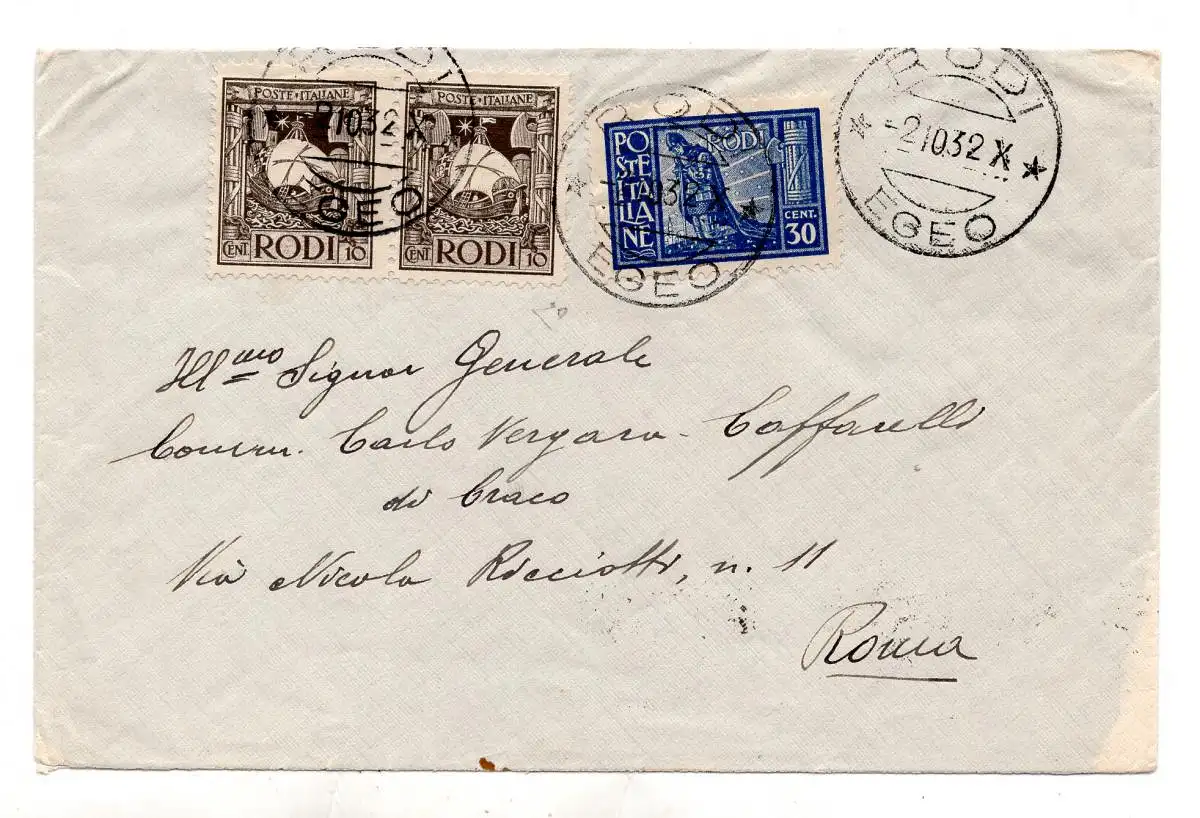 POSTE·ITALIANE
CENT. RODI 10
POSTE·ITALIANE
CENT. RODI 10
RODI
-2.10.32 X
EGEO
POSTE ITALIANE
RODI
CENT. 30
RODI
EGEO
RODI
-2.10.32 X
EGEO
Ill.mo Signor Generale
Comm. Carlo Vergara-Caffarelli
di Craco
Via Nicola Ricciotti, n. 11
Roma